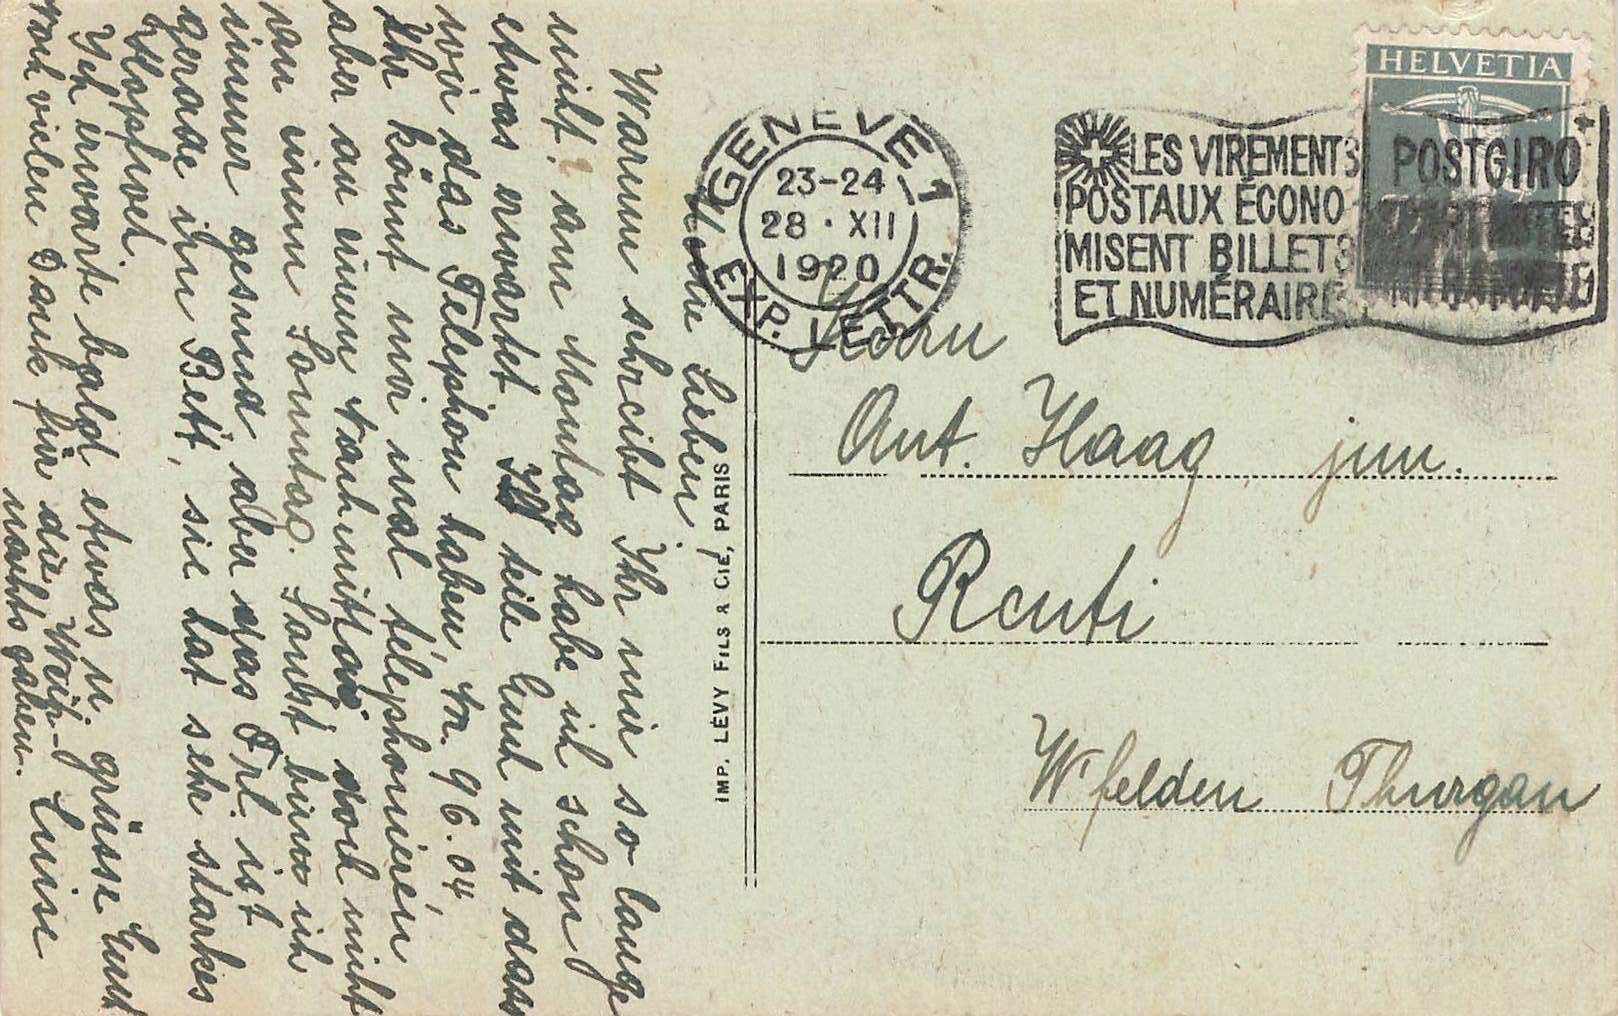 Meine Lieben!
Warum schreibt Ihr mir so lange
nicht? am Montag habe ich schon
etwas erwartet. teile Euch mit dass
wir das Telephon haben, Nr. 96.04,
Ihr könnt mir mal telephonieren
aber an einem Nachmittag, doch nicht
an einem Sonntag. Sonst bin ich
immer gesund aber das Frl. ist
gerade im Bett, sie hat sehr starkes
Kopfweh.
Ich erwarte bald etwas u. grüsse Euch
noch vielen Dank für die Weih-
nachtsgaben. Luise
IMP. LÉVY FILS & CIE, PARIS
GENÈVE 1
23-24
28·XII
1920
EXP. LETTR.
LES VIREMENTS
POSTAUX ÉCONO
MISENT BILLETS
ET NUMÉRAIRE
POSTGIRO
HELVETIA
Herrn
Ant. Haag jun.
Reuti
W'felden Thurgau